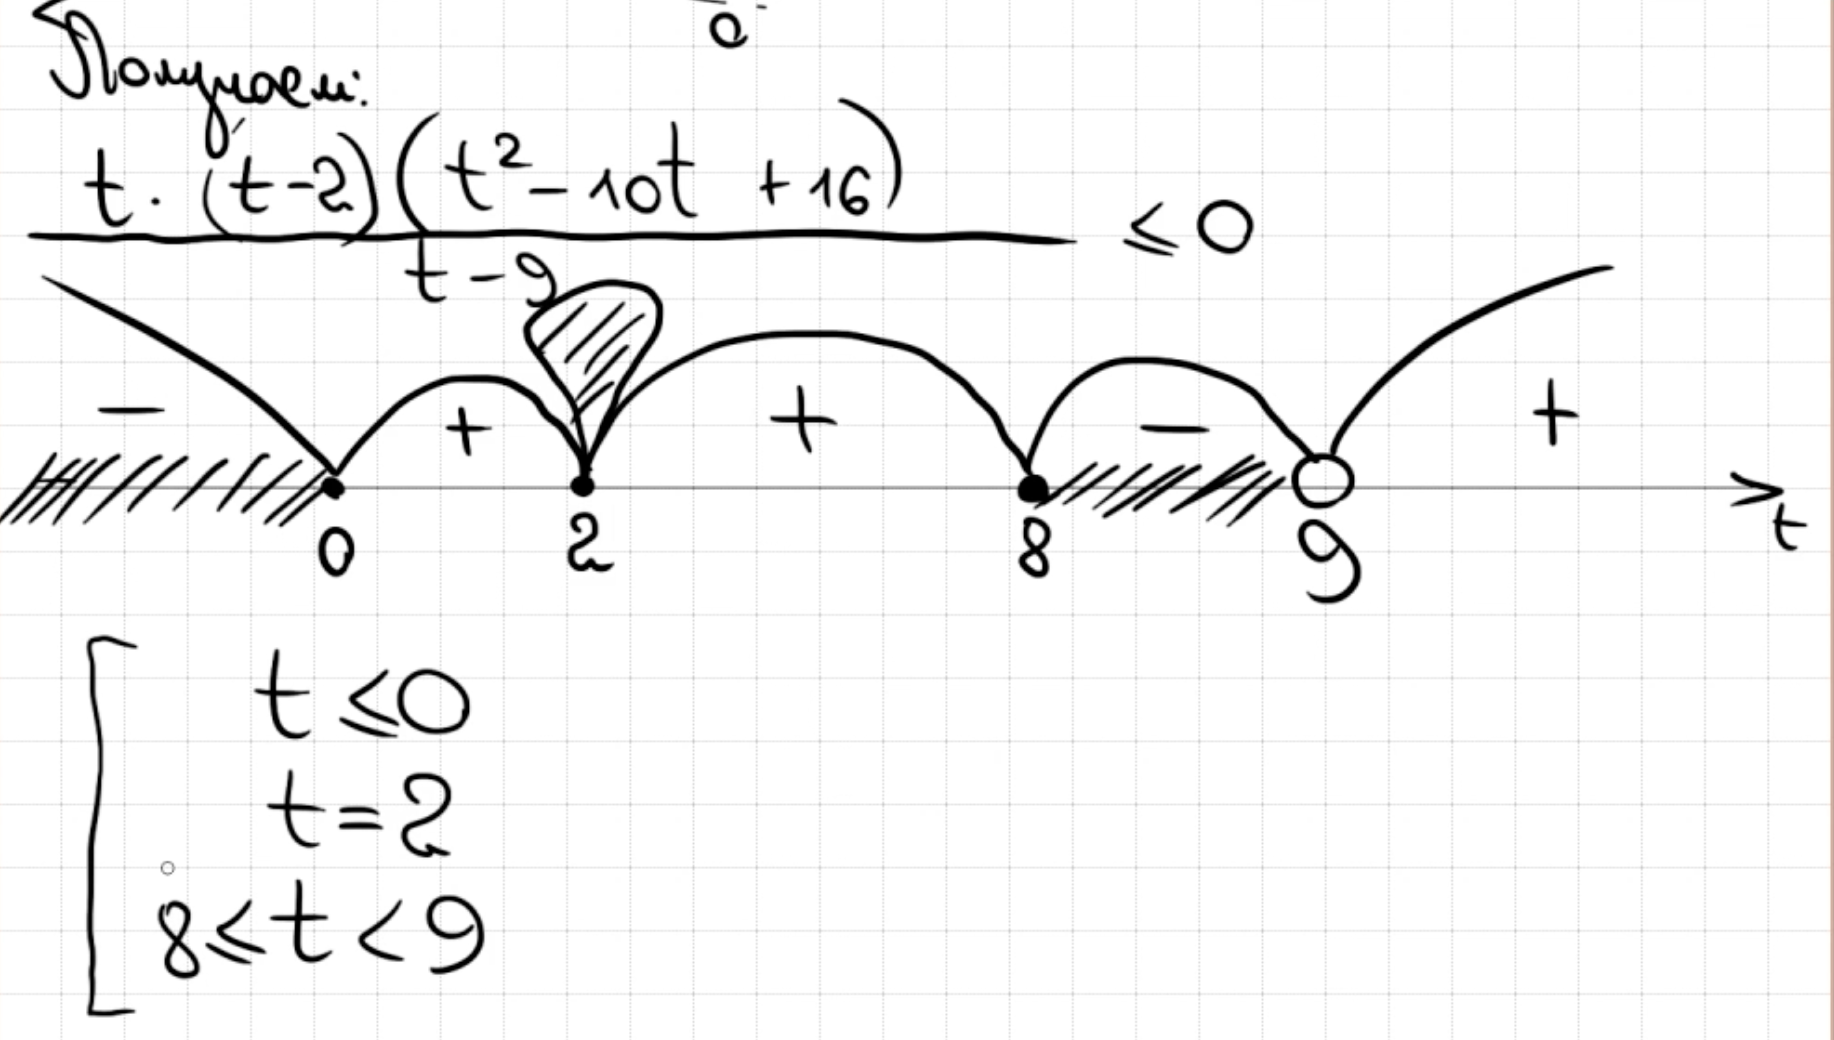 0
Получаем:
t · (t-2)(t² - 10t + 16)
t - 9
≤ 0
- + + - +
0 2 8 9 t
t ≤ 0
t = 2
8 ≤ t < 9